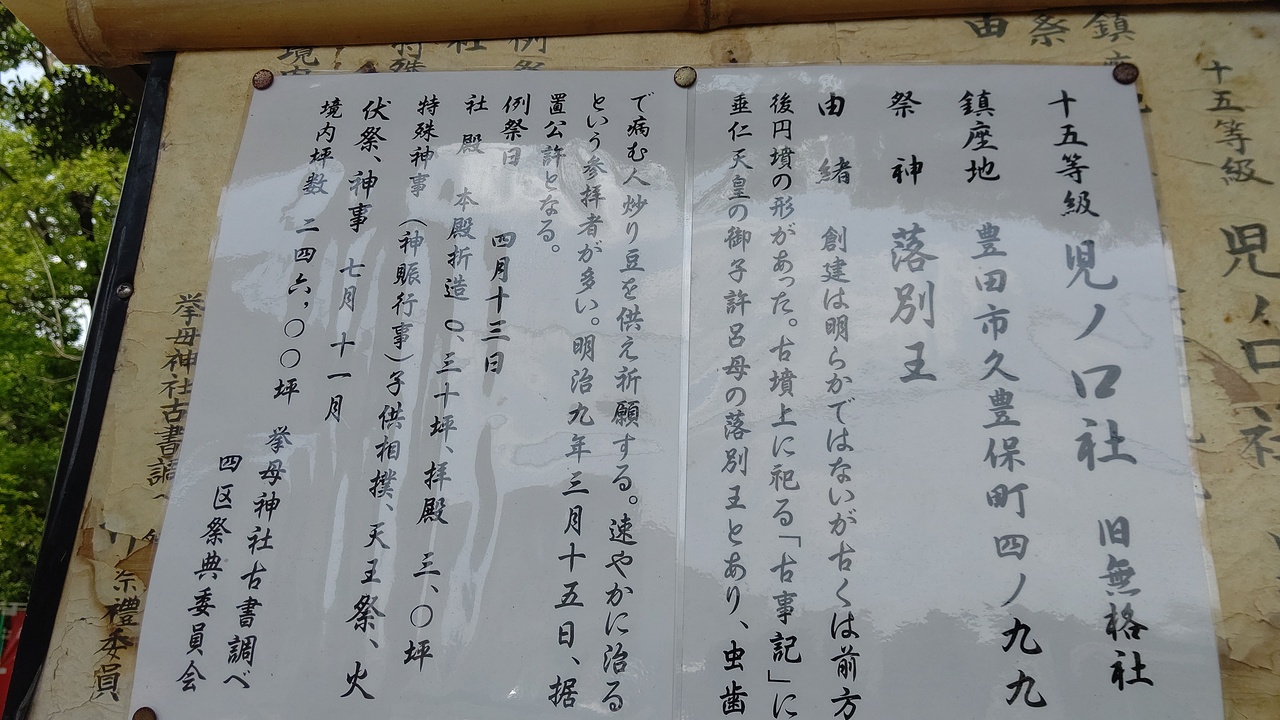 十五等級 児ノ口社 旧無格社
鎮座地 豊田市久豊保町四ノ九九
祭神 落別王
由緒 創建は明らかではないが古くは前方
後円墳の形があった。古墳上に祀る「古事記」に
垂仁天皇の御子許呂母の落別王とあり、虫歯
で病む人炒り豆を供え祈願する。速やかに治る
という参拝者が多い。明治九年三月十五日、据
置公許となる。
例祭日 四月十三日
社殿 本殿折造 〇、三十坪、拝殿 三、〇坪
特殊神事（神賑行事）子供相撲、天王祭、火
伏祭、神事 七月 十一月
境内坪数 二四六，〇〇坪
挙母神社古書調べ
四区祭典委員会
十五等級 児ノ口社
鎮
祭
由
例祭
社
特殊
境内
挙母神社古書調べ
祭禮委員